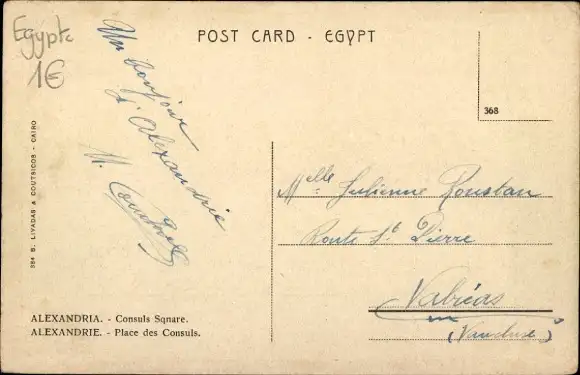 Egypte
1€
POST CARD - EGYPT
368
Un bonjour
d'Alexandrie
M.
Melle Julienne Roustan
Route St Pierre
Valréas
(Vaucluse)
384 B. LIVADAS & COUTSICOS - CAIRO
ALEXANDRIA. - Consuls Sqnare.
ALEXANDRIE. - Place des Consuls.